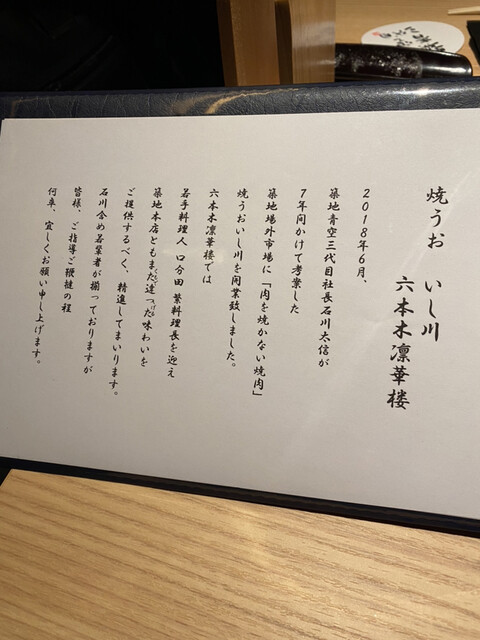 焼うお いし川
六本木凛華楼
2018年6月、
築地青空三代目社長石川太信が
7年間かけて考案した
築地場外市場に「肉を焼かない焼肉」
焼うおいし川を開業致しました。
六本木凛華楼では
若手料理人 口分田 繁料理長を迎え
築地本店ともまた違った味わいを
ご提供するべく、精進してまいります。
石川含め若輩者が揃っておりますが
皆様、ご指導ご鞭撻の程
何卒、宜しくお願い申し上げます。